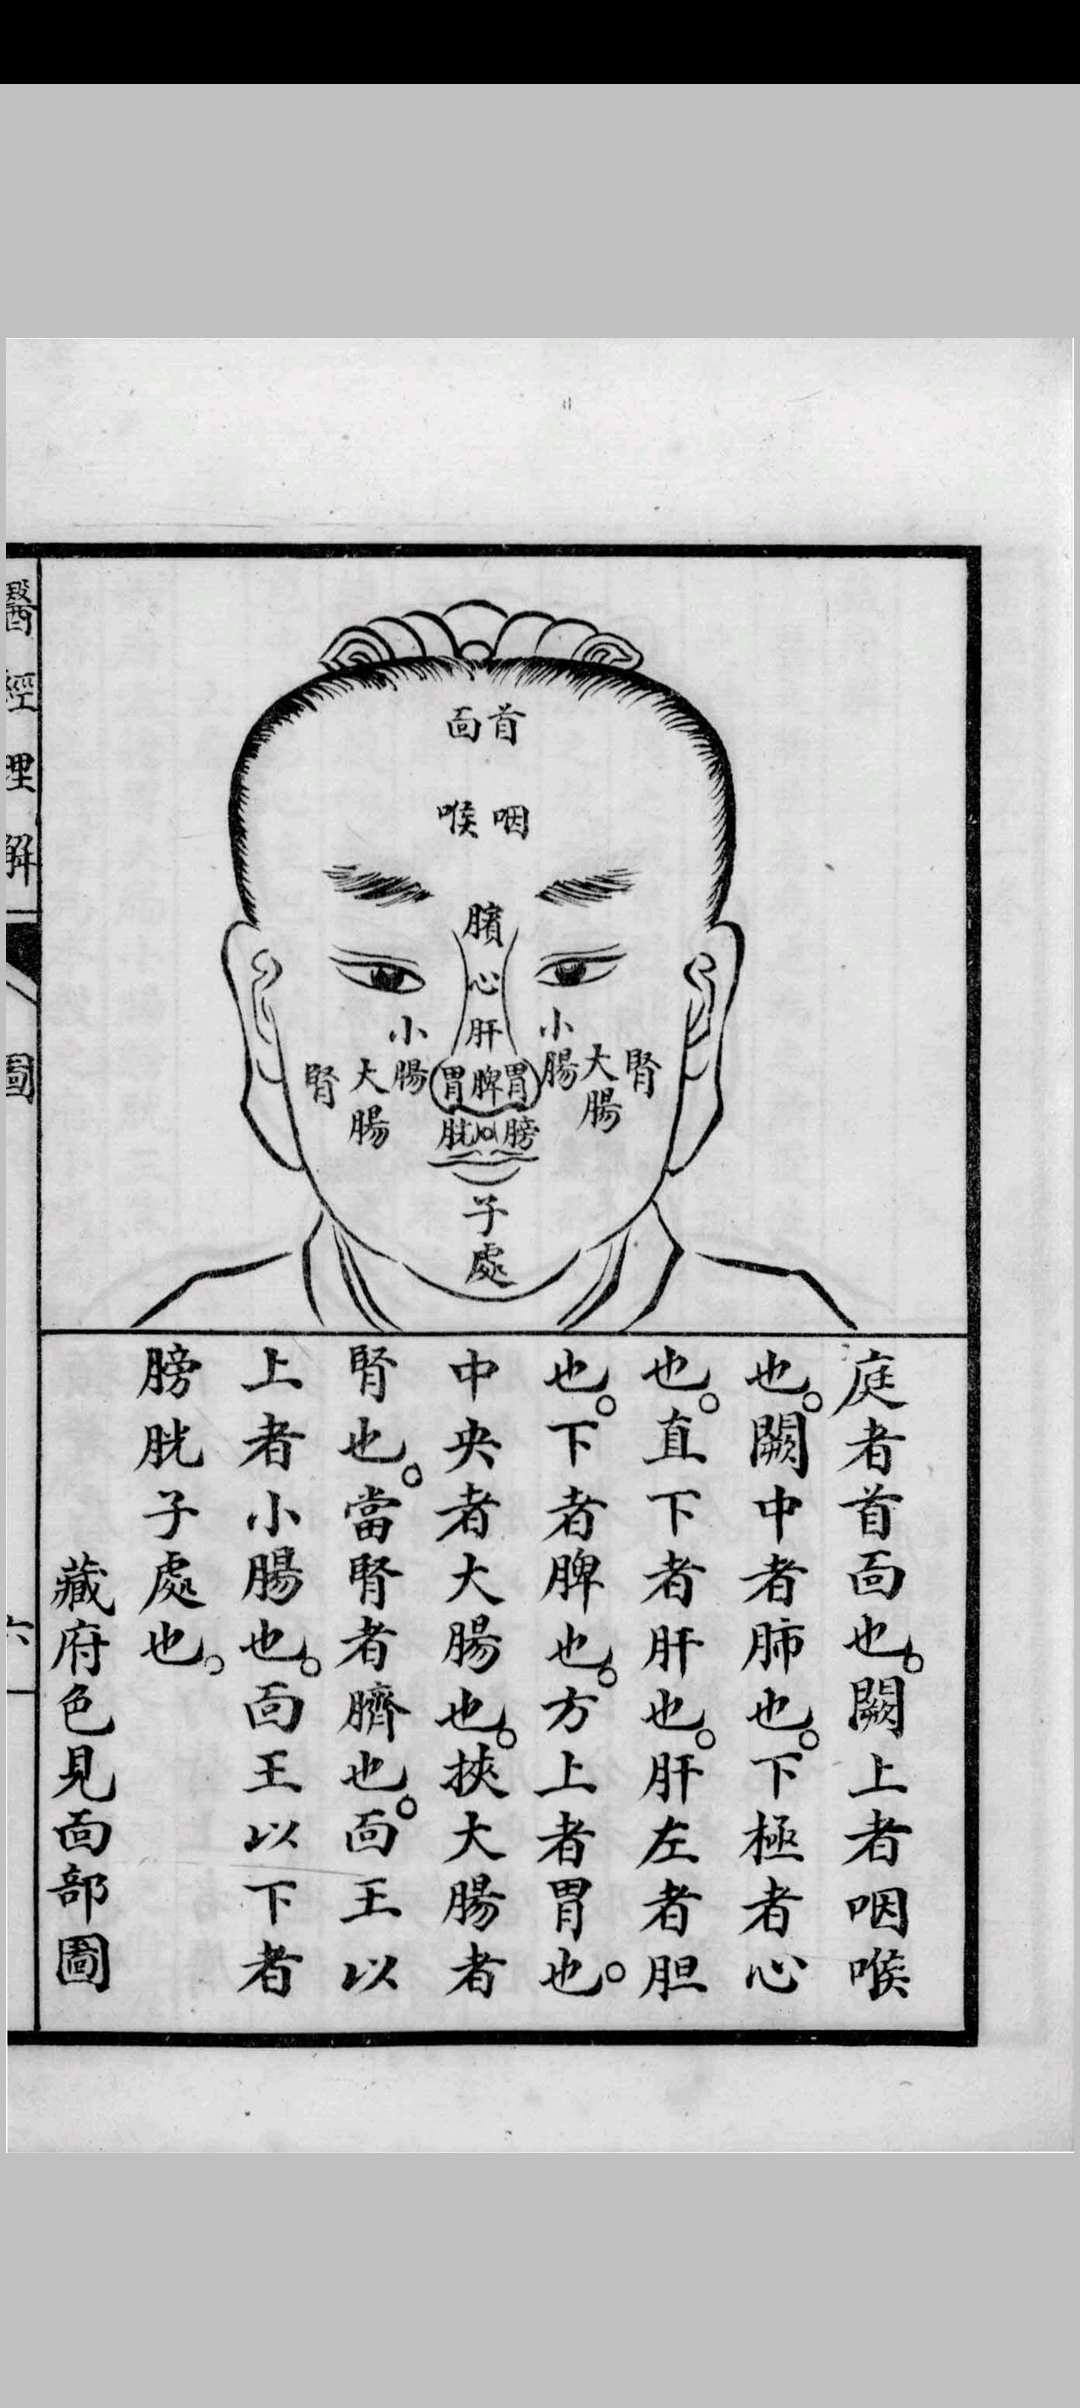 首面
咽喉
心
肝
小腸
小腸
腎
大腸
大腸
腎
胃脾胃
膀胱
子處
庭者首面也。闕上者咽喉
也。闕中者肺也。下極者心
也。直下者肝也。肝左者胆
也。下者脾也。方上者胃也。
中央者大腸也。挾大腸者
腎也。當腎者臍也。面王以
上者小腸也。面王以下者
膀胱子處也。
藏府色見面部圖
醫經理解
圖
六